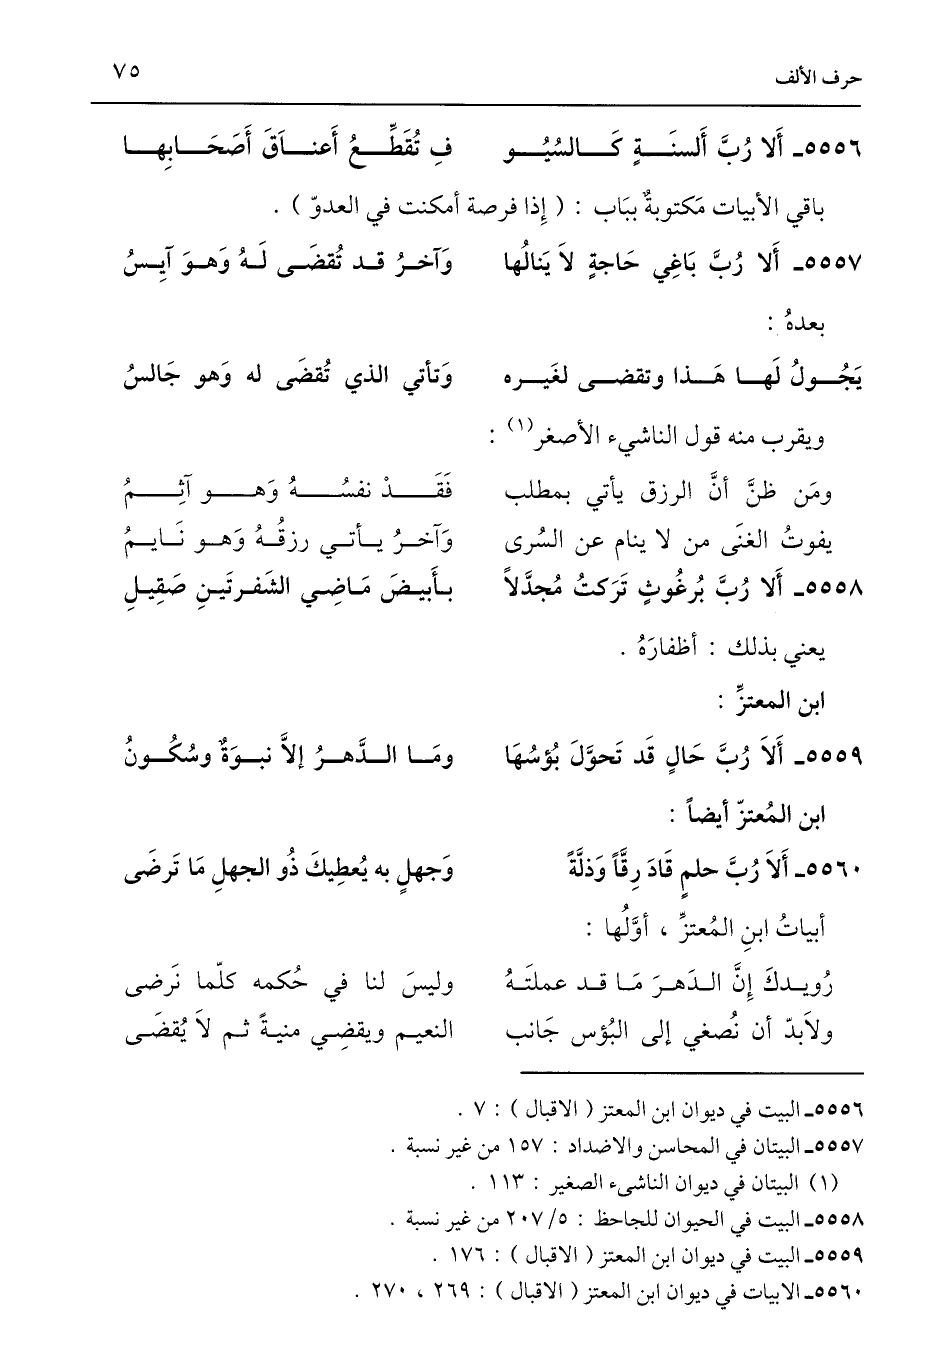 حرف الألف ٧٥
٥٥٥٦ـ أَلا رُبَّ أَلسنَةٍ كَالسُّيُو فِ تُقَطِّعُ أَعنَاقَ أَصَحَابِهَا
باقي الأبيات مَكتوبةٌ ببَاب : ( إذا فرصة أمكنت في العدوّ ) .
٥٥٥٧ـ أَلا رُبَّ بَاغِي حَاجةٍ لاَ يَنالُها وَآخرُ قد تُقضَى لَهُ وَهوَ آيسُ
بعدهُ :
يَجُولُ لَها هَذا وتقضى لغَيره وَتأتي الذي تُقضَى له وَهو جَالسُ
ويقرب منه قول الناشيء الأصغر(١) :
ومَن ظنَّ أنَّ الرزق يأتي بمطلب فَقَدْ نفسُهُ وَهو آثِمُ
يفوتُ الغنَى من لا ينام عن السُرى وَآخرُ يأتي رزقُهُ وَهو نَايمُ
٥٥٥٨ـ أَلا رُبَّ بُرغُوثٍ تَركتُ مُجدَّلاً بأَبيضَ مَاضِي الشَفرتَينِ صَقِيلِ
يعني بذلك : أظفارَهُ .
ابن المعتزِّ :
٥٥٥٩ـ أَلاَ رُبَّ حَالٍ قَد تَحوَّلَ بُؤسُهَا ومَا الدَّهرُ إلاَّ نبوَةٌ وسُكُونُ
ابن المُعتزّ أيضاً :
٥٥٦٠ـ أَلاَ رُبَّ حلمٍ قَادَ رِقَّاً وَذلَّةً وَجهلٍ به يُعطِيكَ ذُو الجهلِ مَا تَرضَى
أبياتُ ابنِ المُعتزِّ ، أوَّلُها :
رُويدكَ إنَّ الدَهرَ مَا قد عملتَهُ وليسَ لنا في حُكمه كلّما نَرضى
ولاَبدّ أن نُصغي إلى البُؤس جَانب النعيم ويقضِي منيةً ثم لاَ يُقضَى
٥٥٥٦ـ البيت في ديوان ابن المعتز ( الاقبال ) : ٧ .
٥٥٥٧ـ البيتان في المحاسن والاضداد : ١٥٧ من غير نسبة .
(١) البيتان في ديوان الناشىء الصغير : ١١٣ .
٥٥٥٨ـ البيت في الحيوان للجاحظ : ٥/ ٢٠٧ من غير نسبة .
٥٥٥٩ـ البيت في ديوان ابن المعتز ( الاقبال ) : ١٧٦ .
٥٥٦٠ـ الابيات في ديوان ابن المعتز ( الاقبال ) : ٢٦٩ ، ٢٧٠ .